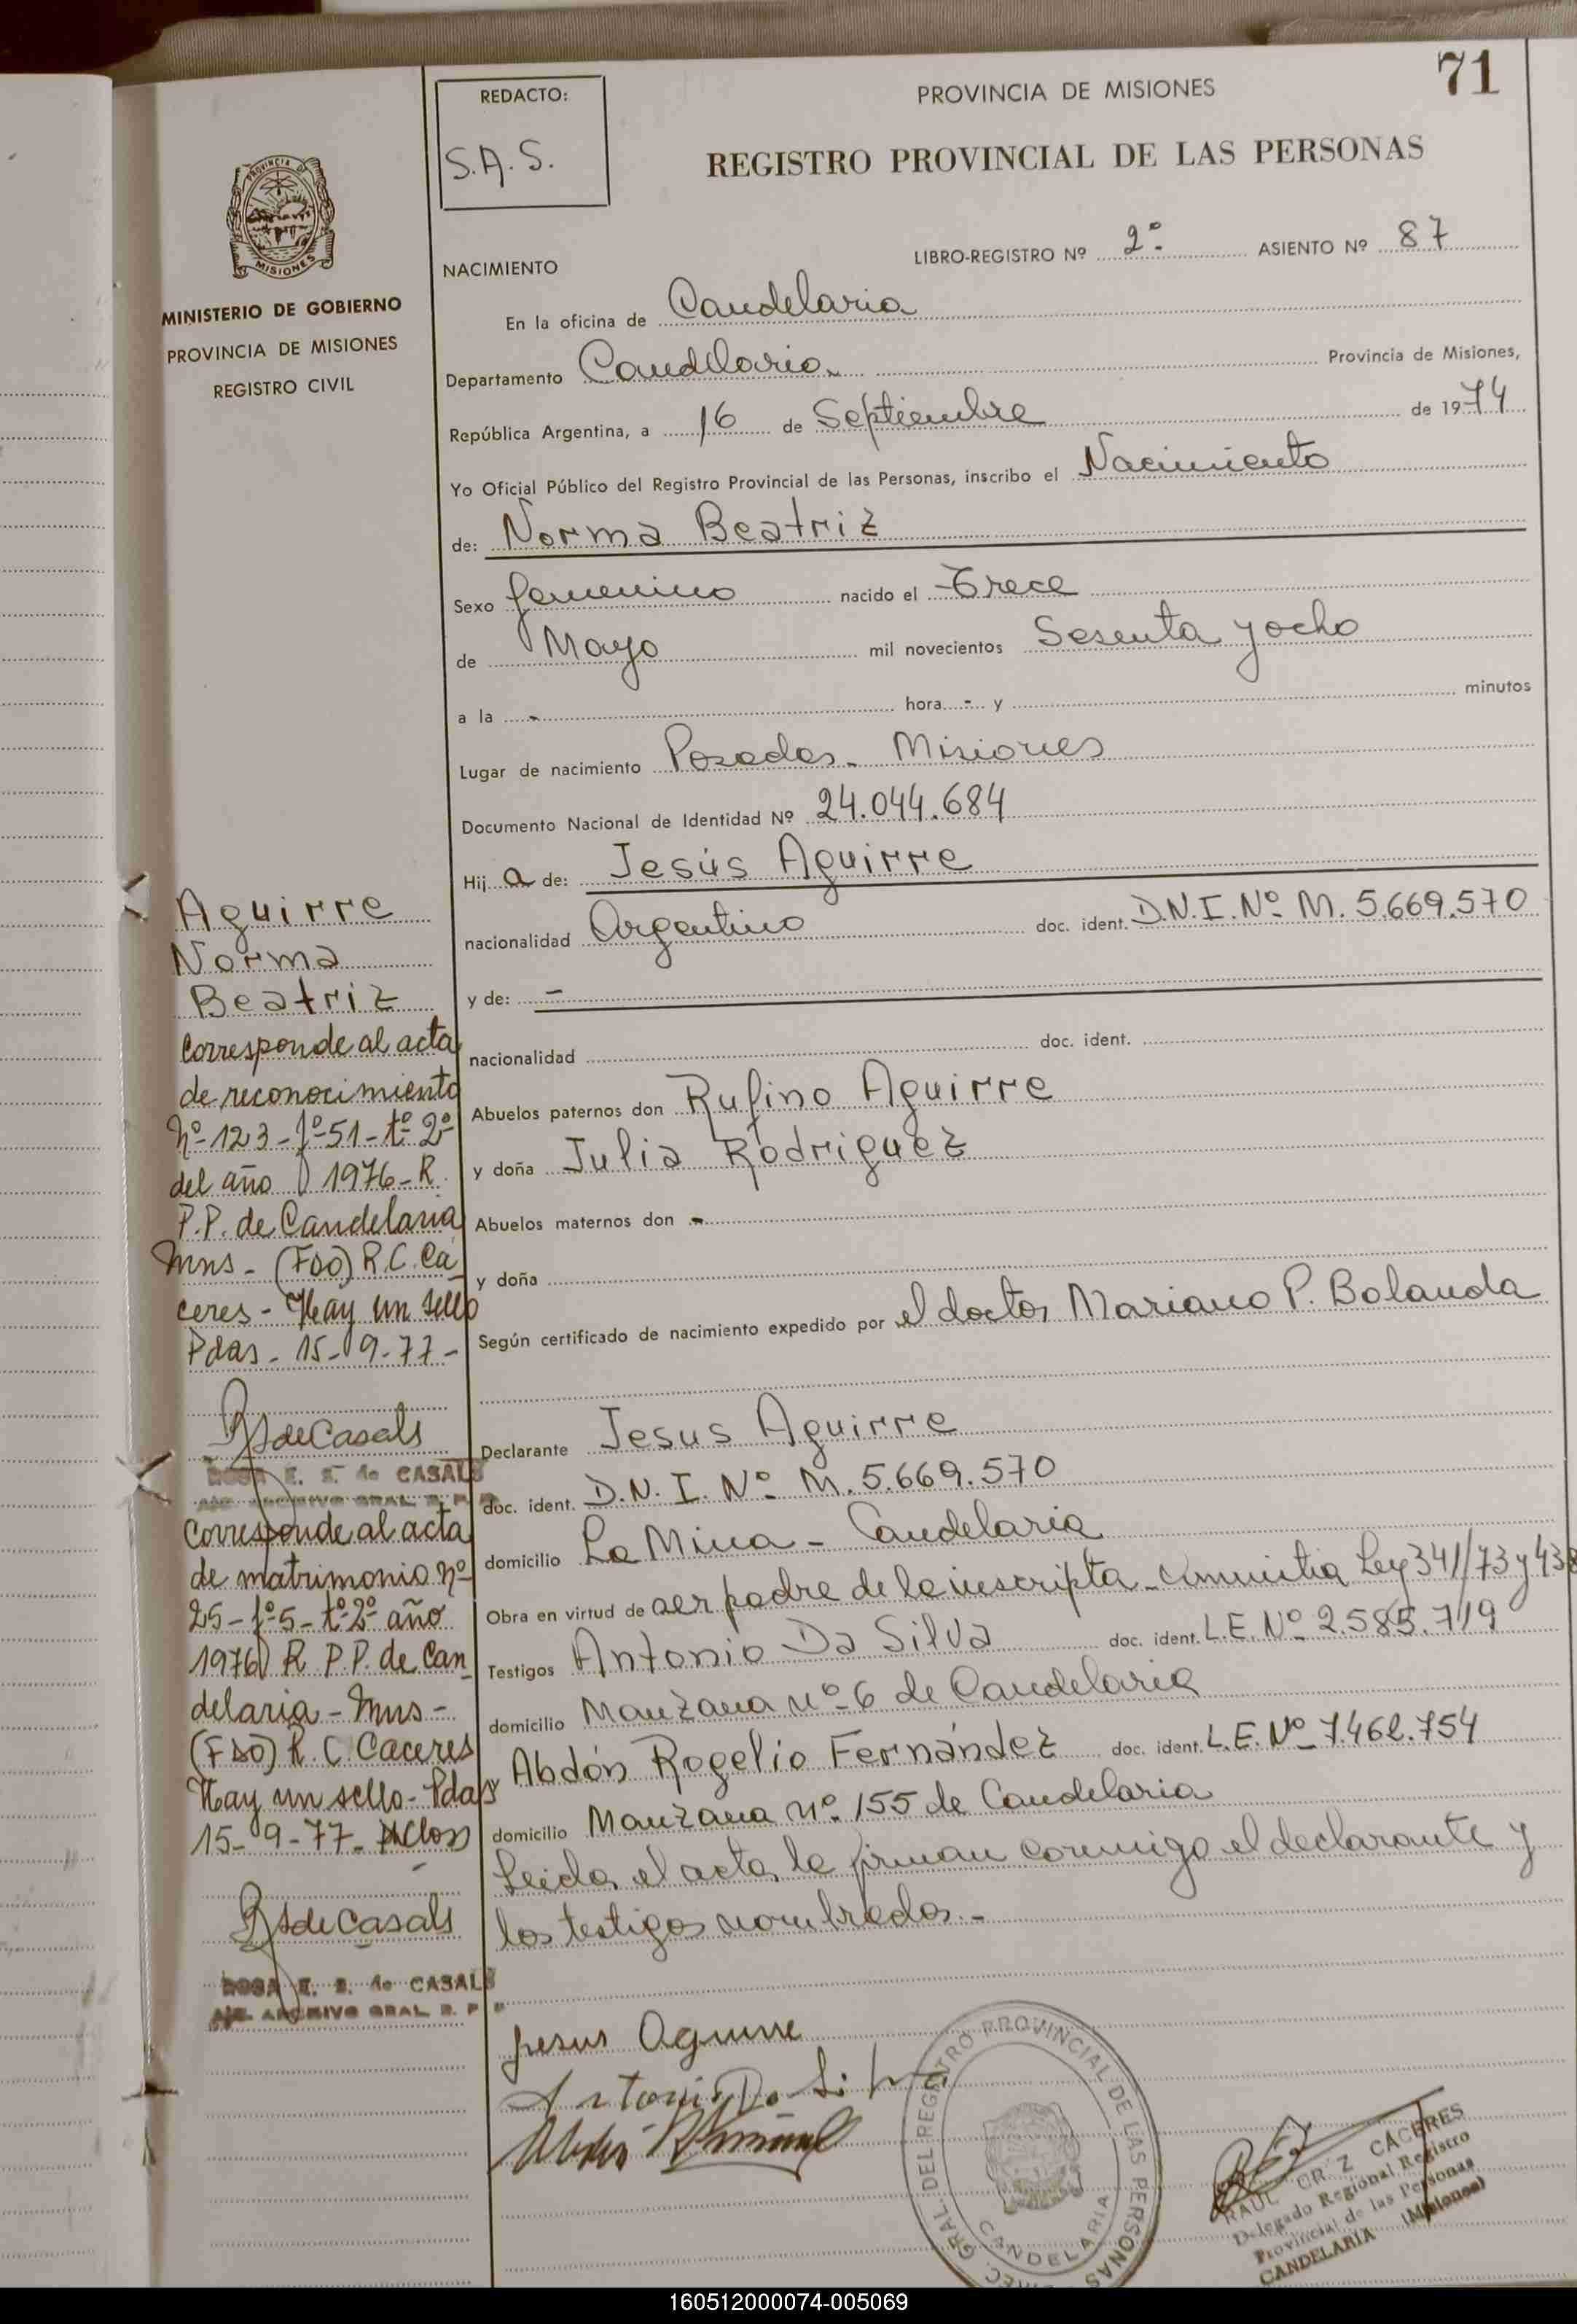 71
REDACTO:
S.A.S.
PROVINCIA DE MISIONES
REGISTRO PROVINCIAL DE LAS PERSONAS
PROVINCIA D
MISIONES
MINISTERIO DE GOBIERNO
PROVINCIA DE MISIONES
REGISTRO CIVIL
NACIMIENTO
LIBRO-REGISTRO Nº 2º ASIENTO Nº 87
En la oficina de Candelaria
Departamento Candelaria. Provincia de Misiones,
República Argentina, a 16 de Septiembre de 1974
Yo Oficial Público del Registro Provincial de las Personas, inscribo el Nacimiento
de: Norma Beatriz
Sexo femenino nacido el Trece
de Mayo mil novecientos Sesenta y ocho
a la - hora - y minutos
Lugar de nacimiento Posadas - Misiones
Documento Nacional de Identidad Nº 24.044.684
Hij a de: Jesús Aguirre
nacionalidad Argentino doc. ident. D.N.I. Nº M. 5.669.570
y de: -
nacionalidad doc. ident.
Abuelos paternos don Rufino Aguirre
y doña Julia Rodriguez
Abuelos maternos don -
y doña
Según certificado de nacimiento expedido por el doctor Mariano P. Bolanda
Declarante Jesus Aguirre
doc. ident. D.N.I. Nº M. 5.669.570
domicilio La Mina - Candelaria
Obra en virtud de ser padre de la inscripta - amnistia Ley 341/73 y 438
Testigos Antonio Da Silva doc. ident. L.E. Nº 2.585.719
domicilio Manzana nº 6 de Candelaria
Abdón Rogelio Fernández doc. ident. L.E. Nº 7.462.754
domicilio Manzana nº 155 de Candelaria
Leida el acta la firman conmigo el declarante y
los testigos nombrados.-
Aguirre
Norma
Beatriz
Corresponde al acta
de reconocimiento
Nº 123 - fº 51 - tº 2º
del año 1976 - R.
P.P. de Candelaria
Mns - (FDO) R.C. Cá
ceres - Hay un sello
Pdas - 15-9-77 -
R S de Casals
ROSA E. S. de CASALS
ARCHIVO GRAL. R. P. P.
Corresponde al acta
de matrimonio nº
25 - fº 5 - tº 2º año
1976 R P.P. de Can
delaria - Mns -
(FDO) R. C. Caceres
Hay un sello - Pdas
15-9-77-
R S de Casals
ROSA E. S. de CASALS
ARCHIVO GRAL. R. P. P.
Jesus Aguirre
Antonio Da Silva
GRAL. DEL REGISTRO PROVINCIAL DE LAS PERSONAS
CANDELARIA
RAUL CRUZ CÁCERES
Delegado Regional Registro
Provincial de las Personas
CANDELARIA (Misiones)
160512000074-005069